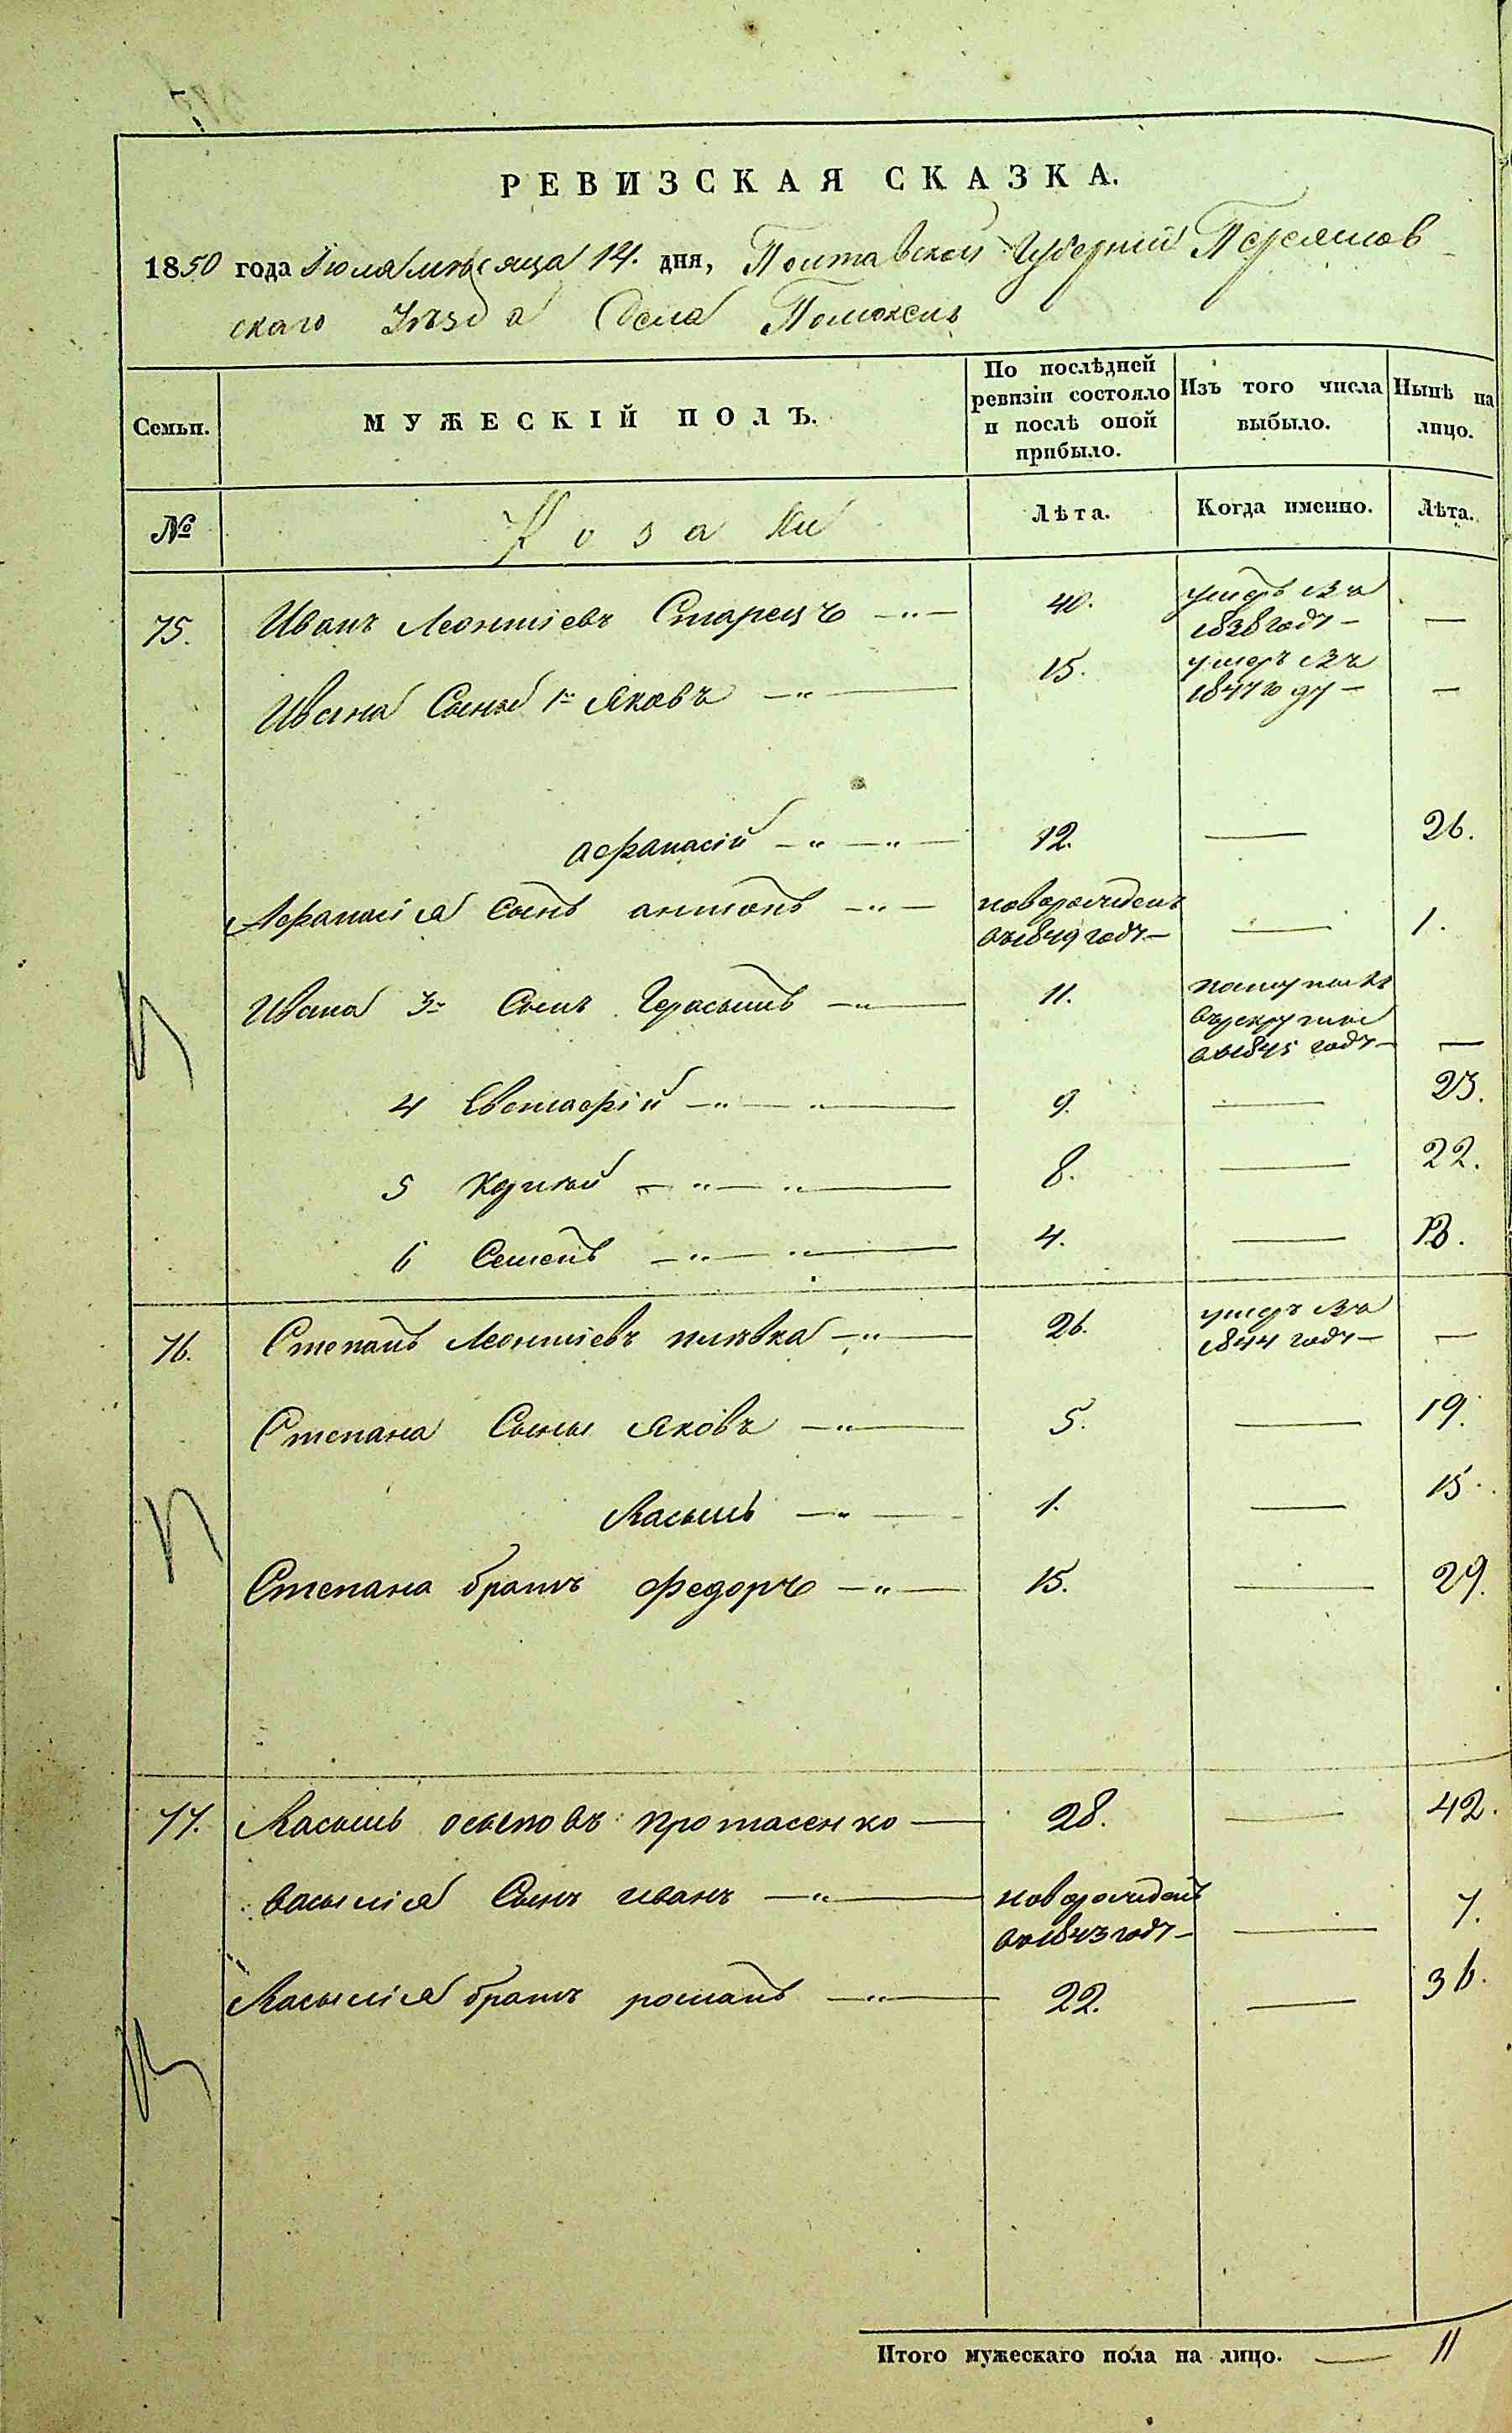 РЕВИЗСКАЯ СКАЗКА.
1850 года Іюля мѣсяца 14. дня, Полтавской Губерніи Переяслов
скаго Уѣзда Села Помокль
Семьи. МУЖЕСКІЙ ПОЛЪ. По послѣдней ревизіи состояло и послѣ оной прибыло. Изъ того числа выбыло. Нынѣ на лицо.
№ Козаки Лѣта. Когда именно. Лѣта.
75. Иванъ Леонтіевъ Старецъ 40. умеръ въ 1838 году —
Ивана Сыновья 1й Яковъ 15. умеръ въ 1847 году —
Афанасій 12. — 26.
Афанасія Сынъ антонъ новорожденъ въ 1849 году — 1.
Ивана 3й Сынъ Герасымъ 11. поступилъ въ рекруты въ 1845 году —
4 Евстафій 9. — 23.
5 8. — 22.
6 Семенъ 4. — 18.
76. Степанъ Леонтіевъ 26. умеръ въ 1844 году —
Степана Сыны Яковъ 5. — 19.
Васыль 1. — 15.
Степана братъ Федоръ 15. — 29.
77. Васыль осыповъ протасенко 28. — 42.
Васылія Сынъ иванъ новорожденъ въ 1843 году — 7.
Васылія братъ романъ 22. — 36.
Итого мужескаго пола на лицо. — 11